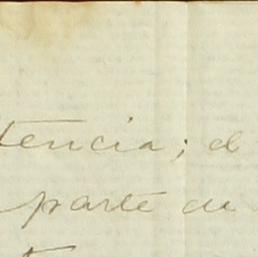 tencia; el
parte de